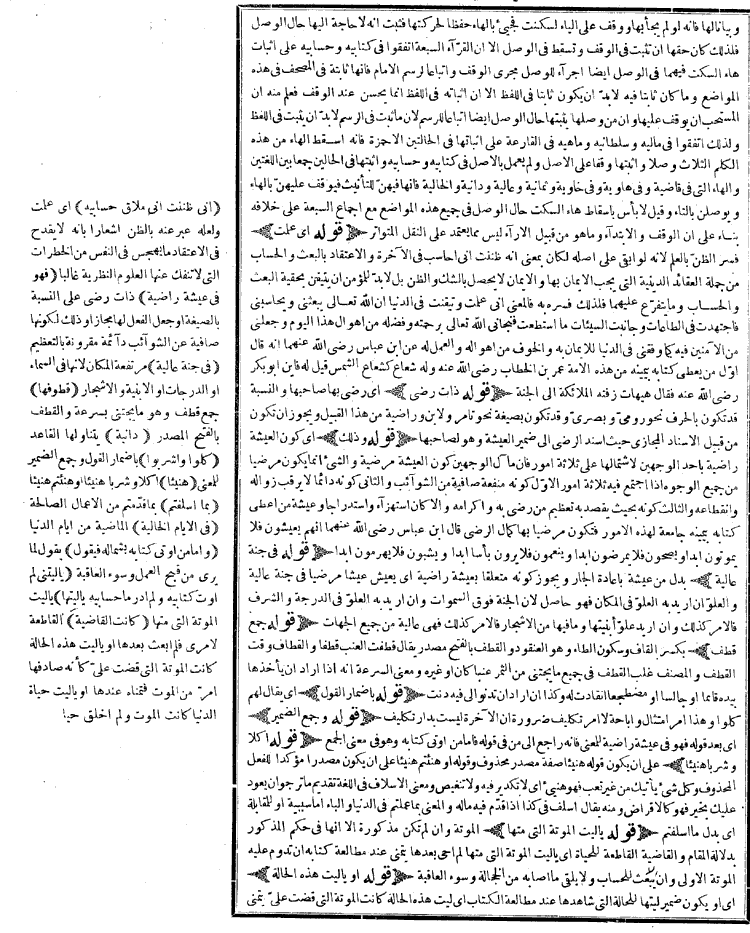 وبيانالها فانه لو لم يجأ بها ووقف على الياء لسكنت فجيئ بالهاء حفظا لحركتها فثبت انه لا حاجة اليها حال الوصل
فلذلك كان حقها ان تثبت فى الوقف وتسقط فى الوصل الا ان القرآء السبعة اتفقوا فى كتابيه وحسابيه على اثبات
هاء السكت فيهما فى الوصل ايضا اجرآء للوصل مجرى الوقف واتباعا لرسم الامام فانها ثابتة فى المصحف فى هذه
المواضع وما كان ثابتا فيه لابدّ ان يكون ثابتا فى اللفظ الا ان اثباته فى اللفظ انما يحسن عند الوقف فعلم منه ان
المستحب ان يوقف عليها وان من وصلها يثبتها حال الوصل ايضا اتباعا للرسم لان ما ثبت فى الرسم لابدّ ان يثبت فى اللفظ
ولذلك اتفقوا فى ماليه وسلطانيه وماهيه فى القارعة على اثباتها فى الحالتين الاحمزة فانه اسقط الهاء من هذه
الكلم الثلاث وصلا واثبتها وقفا على الاصل ولم يعمل بالاصل فى كتابيه وحسابيه واثبتها فى الحالين جمعا بين اللغتين
والهاء التى فى قاضية وفى هاوية وفى خاوية وثمانية وعالية ودانية والخالية فانها فيهنّ للتأنيث فيوقف عليهنّ بالهاء
ويوصلن بالتاء وقيل لا بأس باسقاط هاء السكت حال الوصل فى جميع هذه المواضع مع اجماع السبعة على خلافه
بناء على ان الوقف والابتدآء وماهو من قبيل الارآء ليس مما يعتمد على النقل المتواتر ﴿ قوله اى علمت ﴾
فسر الظنّ بالعلم لانه لوابقى على اصله لكان بمعنى انه ظننت انى احاسب فى الآخرة والاعتقاد بالبعث والحساب
من جملة العقائد الدينية التى يجب الايمان بها والايمان لا يحصل بالشك والظن بل لابدّ للمؤمن ان يتيقن بحقية البعث
والحساب وما يتفرّع عليهما فلذلك فسره به فالمعنى انى علمت وتيقنت فى الدنيا ان الله تعالى يبعثنى ويحاسبنى
فاجتهدت فى الطاعات وجانبت السيئات ما استطعت فنجانى الله تعالى برحمته وفضله من اهوال هذا اليوم وجعلنى
من الآمنين فيه كما وفقنى فى الدنيا للايمان به والخوف من اهواله والعمل له عن ابن عباس رضى الله عنهما انه قال
اوّل من يعطى كتابه بيمينه من هذه الامة عمر بن الخطاب رضى الله عنه وله شعاع كشعاع الشمس قيل له فاين ابو بكر
رضى الله عنه فقال هيهات زفته الملائكة الى الجنة ﴿ قوله ذات رضى ﴾ اى رضى بها صاحبها والنسبة
قد تكون بالحرف نحو رومىّ وبصرىّ وقد تكون بصيغة نحو تامر ولابن وراضية من هذا القبيل ويجوز ان تكون
من قبيل الاسناد المجازى حيث اسند الرضى الى ضمير العيشة وهو لصاحبها ﴿ قوله وذلك ﴾ اى كون العيشة
راضية باحد الوجهين لاشتمالها على ثلاثة امور فان مآل الوجهين كون العيشة مرضية والشئ انما يكون مرضيا
من جميع الوجوه اذا اجتمع فيه ثلاثة امور الاوّل كونه منفعة صافية من الشوآئب والثانى كونه دائما لا يرقب زواله
وانقطاعه والثالث كونه بحيث يقصد به تعظيم من رضى به واكرامه والا كان استهزآء واستدراجا وعيشة من اعطى
كتابه بيمينه جامعة لهذه الامور فتكون مرضيا بها كمال الرضى قال ابن عباس رضى الله عنهما انهم يعيشون فلا
يموتون ابدا ويصحون فلا يمرضون ابدا وينعمون فلا يرون بأسا ابدا ويشبون فلا يهرمون ابدا ﴿ قوله فى جنة
عالية ﴾ بدل من عيشة باعادة الجار ويجوز كونه متعلقا بعيشة راضية اى يعيش عيشا مرضيا فى جنة عالية
والعلوّ ان اريد به العلوّ فى المكان فهو حاصل لان الجنة فوق السموات وان اريد به العلوّ فى الدرجة والشرف
فالامر كذلك وان اريد علوّ أبنيتها وما فيها من الاشجار فالامر كذلك فهى عالية من جميع الجهات ﴿ قوله جمع
قطف ﴾ بكسر القاف وسكون الطاء وهو العنقود والقطف بالفتح مصدر يقال قطفت العنب قطفا والقطاف وقت
القطف والمصنف غلب القطف فى جميع ما يجتنى من الثمر عنبا كان او غيره ومعنى السرعة انه اذا اراد ان يأخذها
بيده قائما او جالسا او مضطجعا انقادت له وكذا ان اراد ان تدنو الى فيه دنت ﴿ قوله باضمار القول ﴾ اى يقال لهم
كلوا وهذا امر امتنان واباحة لا امر تكليف ضرورة ان الآخرة ليست بدار تكليف ﴿ قوله وجمع الضمير ﴾
اى بعد قوله فهو فى عيشة راضية للمعنى فانه راجع الى من فى قوله فاما من اوتى كتابه وهو فى معنى الجمع ﴿ قوله اكلا
وشربا هنيئا ﴾ على ان يكون قوله هنيئا صفة مصدر محذوف وقوله او هنئتم هنيئا على ان يكون مصدرا مؤكدا للفعل
المحذوف وكل شئ يأتيك من غير تعب فهو هنيئ اى لا تكدير فيه ولا تنغيص ومعنى الاسلاف فى اللغة تقديم ما ترجو ان يعود
عليك بخير فهو كالاقراض ومنه يقال اسلف فى كذا اذا قدّم فيه ماله والمعنى بما عملتم فى الدنيا والباء اما سببية او للمقابلة
اى بدل ما اسلفتم ﴿ قوله ياليت الموتة التى متها ﴾ الموتة وان لم تكن مذكورة الا انها فى حكم المذكور
بدلالة المقام والقاضية القاطعة للحياة اى ياليت الموتة التى متها لم احى بعدها يتمنى عند مطالعة كتابه ان تدوم عليه
الموتة الاولى وان يبعث للحساب ولا يلقى ما اصابه من الخجالة وسوء العاقبة ﴿ قوله او ياليت هذه الحالة ﴾
اى او يكون ضمير ليتها للحالة التى شاهدها عند مطالعة الكتاب اى ليت هذه الحالة كانت الموتة التى قضت علىّ يتمنى
(انى ظننت انى ملاق حسابيه) اى علمت
ولعله عبر عنه بالظن اشعارا بانه لا يقدح
فى الاعتقاد ما يهجس فى النفس من الخطرات
التى لا تنفك عنها العلوم النظرية غالبا (فهو
فى عيشة راضية) ذات رضى على النسبة
بالصيغة او جعل الفعل لها مجازا وذلك لكونها
صافية عن الشوآئب دآئمة مقرونة بالتعظيم
(فى جنة عالية) مرتفعة المكان لانها فى السماء
او الدرجات او الابنية والاشجار (قطوفها)
جمع قطف وهو ما يجتنى بسرعة والقطف
بالفتح المصدر (دانية) يتناولها القاعد
(كلوا واشربوا) باضمار القول وجمع الضمير
للمعنى (هنيئا) اكلا وشربا هنيئا او هنئتم هنيئا
(بما اسلفتم) بما قدّمتم من الاعمال الصالحة
(فى الايام الخالية) الماضية من ايام الدنيا
(واما من اوتى كتابه بشماله فيقول) يقول لما
يرى من قبح العمل وسوء العاقبة (ياليتنى لم
اوت كتابيه ولم ادر ما حسابيه ياليتها) ياليت
الموتة التى متها (كانت القاضية) القاطعة
لامرى فلم ابعث بعدها او ياليت هذه الحالة
كانت الموتة التى قضت علىّ كأنه صادفها
امرّ من الموت فتمناه عندها او ياليت حياة
الدنيا كانت الموت ولم اخلق حيا